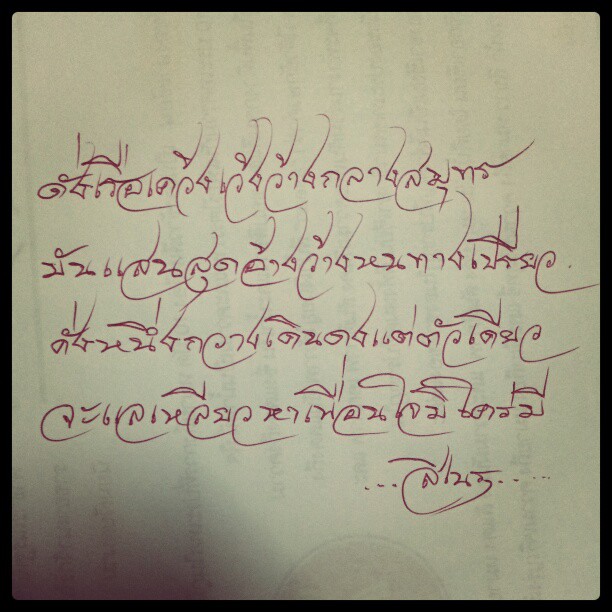 ดั่งเรือเคว้งเว้งว้างกลางสมุทร
มันแสนสุดอ้างว้างหนทางเปรี่ยว
ดั่งหนึ่งกวางเดินดงแต่ตัวเดียว
จะแลเหลียวหาเพื่อนใจมิใคร่มี